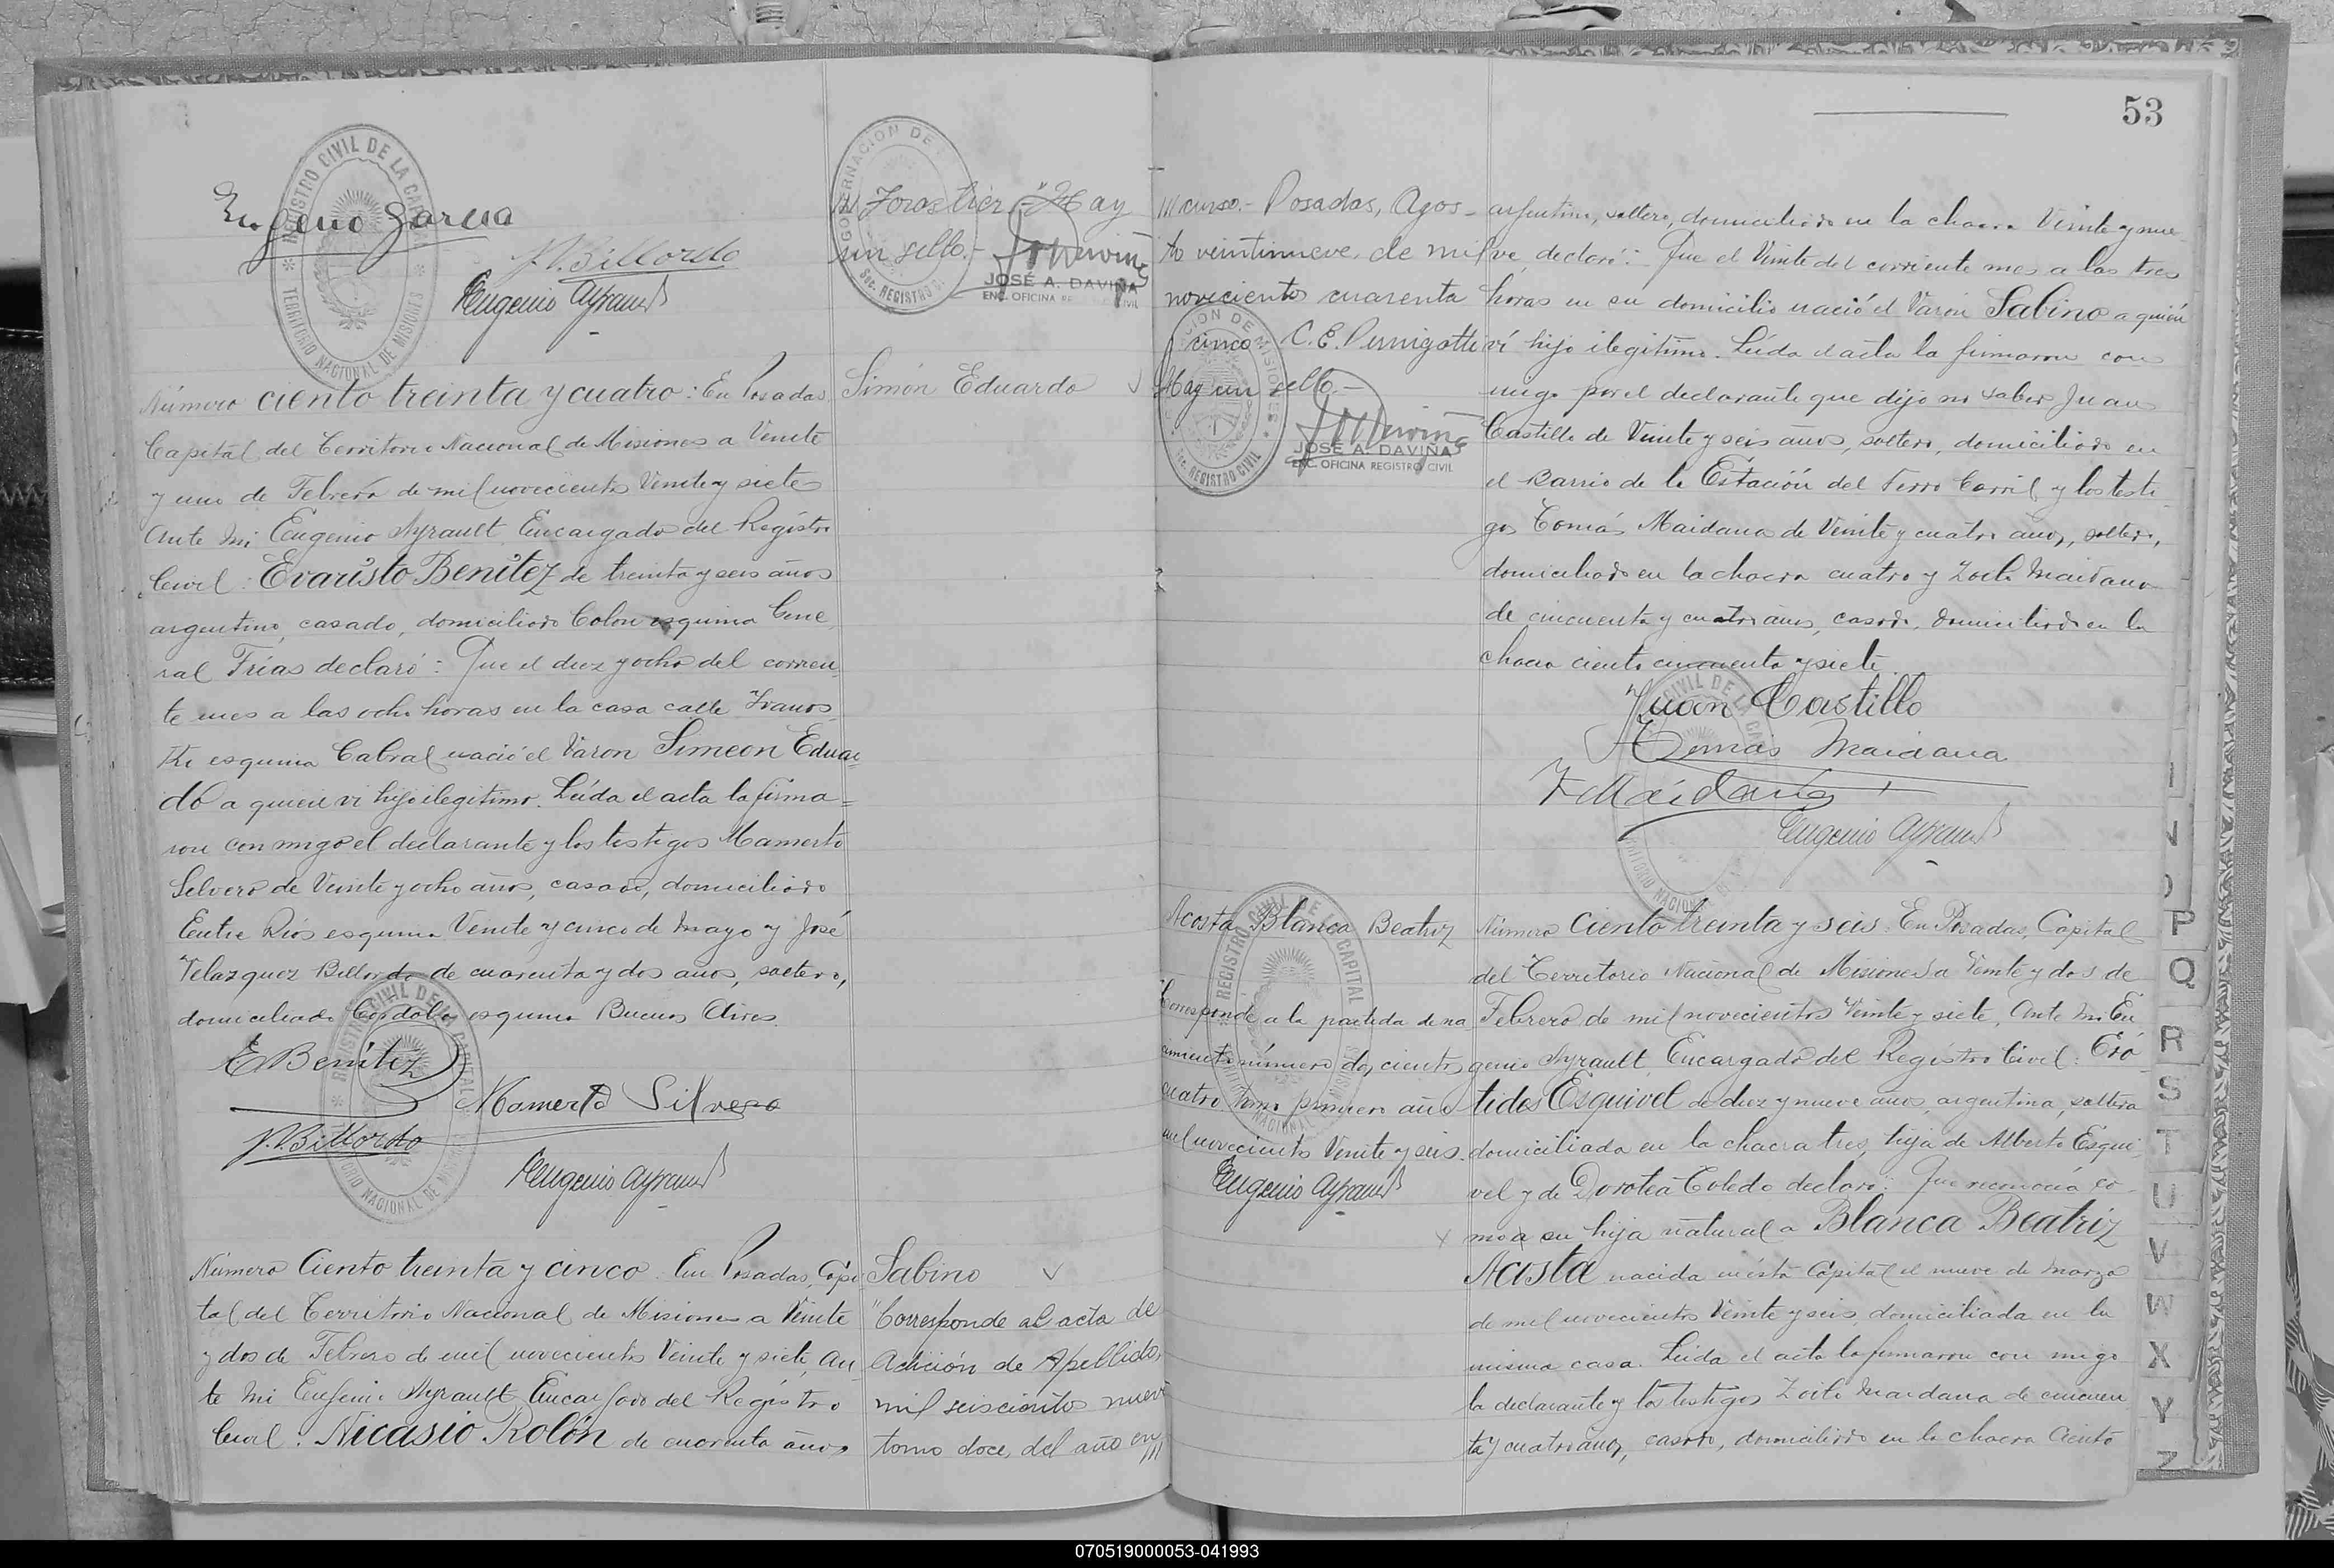 Eugenio Garcia
J.V. Billordo
Eugenio Ayrault
REGISTRO CIVIL DE LA CAPITAL
TERRITORIO NACIONAL DE MISIONES
Número ciento treinta y cuatro: En Posadas,
Capital del Territorio Nacional de Misiones a Veinte
y uno de Febrero de mil novecientos Veinte y siete
Ante mi Eugenio Ayrault Encargado del Registro
Civil: Evaristo Benítez de treinta y seis años
argentino, casado, domiciliado Colon esquina Gene
ral Frias declaró: Que el diez y ocho del corrien
te mes a las ocho horas en la casa calle
esquina Cabral nació el Varon Simeon Eduar
do a quien vi hijo ilegitimo. Leída el acta la firma=
ron con migo el declarante y los testigos Mamerto
Silvero de Veinte y ocho años, casado, domiciliado
Entre Rios esquina Veinte y cinco de Mayo y José
Velazquez Billordo de cuarenta y dos años, soltero,
domiciliado Córdoba esquina Buenos Aires.
E Benítez
Mamerto Silvero
J.V. Billordo
Eugenio Ayrault
Número Ciento treinta y cinco. En Posadas, Capi
tal del Territorio Nacional de Misiones a Veinte
y dos de Febrero de mil novecientos Veinte y siete, an
te mi Eugenio Ayrault Encargado del Registro
Civil: Nicasio Rolón de cuarenta años
GOBERNACION DE
Sec. REGISTRO C.
Hay
un sello.-
JOSÉ A. DAVIÑA
ENC. OFICINA RE CIVIL
Simón Eduardo
Sabino
"Corresponde al acta de
Adición de Apellido,
mil seiscientos nueve
tomo doce, del año en
53
curso.- Posadas, Agos-
to veintinueve, de mil
novecientos cuarenta
cinco C.E. Pernigotti
Hay un sello.-
JOSÉ A. DAVIÑA
ENC. OFICINA REGISTRO CIVIL
Sec. REGISTRO CIVIL
argentino, soltero, domiciliado en la chacra Veinte y nue
ve, declaró: Que el Veinte del corriente mes a las tres
horas en su domicilio nació el Varon Sabino a quién
ví hijo ilegitimo. Leída el acta la firmaron con
migo por el declarante que dijo no saber Juan
Castillo de Veinte y seis años, soltero, domiciliado en
el Barrio de la Estación del Ferro Carril y los testi
gos Tomás Maidana de Veinte y cuatro años, soltero,
domiciliado en la chacra cuatro y Zoilo Maidana
de cincuenta y cuatro años, casado, domiciliado en la
chacra ciento cincuenta y siete
Juan Castillo
Tomás Maidana
Z Maidana
Eugenio Ayrault
Acosta Blanca Beatriz
Corresponde a la partida de na
cimiento número doscientos
cuatro tomo primero año
mil novecientos Veinte y seis.
Eugenio Ayrault
REGISTRO CIVIL DE LA CAPITAL
Número Ciento treinta y seis: En Posadas, Capital
del Territorio Nacional de Misiones a Veinte y dos de
Febrero de mil novecientos Veinte y siete, Ante mi Eu
genio Ayrault Encargado del Registro Civil: Eró
tides Esquivel de diez y nueve años, argentina, soltera
domiciliada en la chacra tres, hija de Alberto Esqui
vel y de Dorotea Toledo declaró: Que reconocía co
mo a su hija natural a Blanca Beatriz
Acosta nacida en ésta Capital el nueve de marzo
de mil novecientos Veinte y seis, domiciliada en la
misma casa. Leida el acta la firmaron con migo
la declarante y los testigos Zoilo Maidana de cincuen
ta y cuatro años, casado, domiciliado en la chacra Ciento
P
Q
R
S
T
U
V
W
X
Y
Z
070519000053-041993